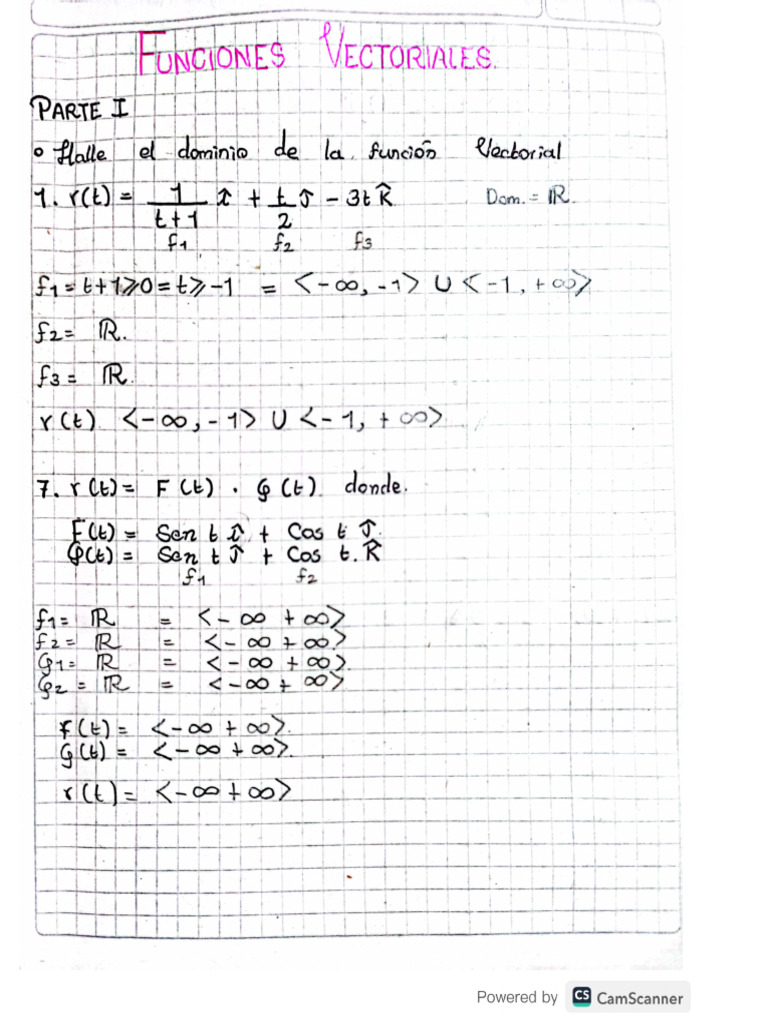 FUNCIONES VECTORIALES.
PARTE I
o Halle el dominio de la función Vectorial
1. r(t) = 1/(t+1) î + t/2 ĵ - 3t k̂   Dom. = ℝ.
f1 f2 f3
f1 = t+1⩾0 = t⩾-1 = <-∞, -1> U <-1, +∞>
f2 = ℝ.
f3 = ℝ.
r(t) <-∞, -1> U <-1, +∞>
7. r(t) = F(t) . G(t) donde.
F(t) = Sen t î + Cos t ĵ.
G(t) = Sen t ĵ + Cos t. k̂
f1 f2
f1 = ℝ = <-∞ +∞>
f2 = ℝ = <-∞ +∞>
G1 = ℝ = <-∞ +∞>.
G2 = ℝ = <-∞ +∞>
F(t) = <-∞ +∞>.
G(t) = <-∞ +∞>.
r(t) = <-∞ +∞>
Powered by CS CamScanner